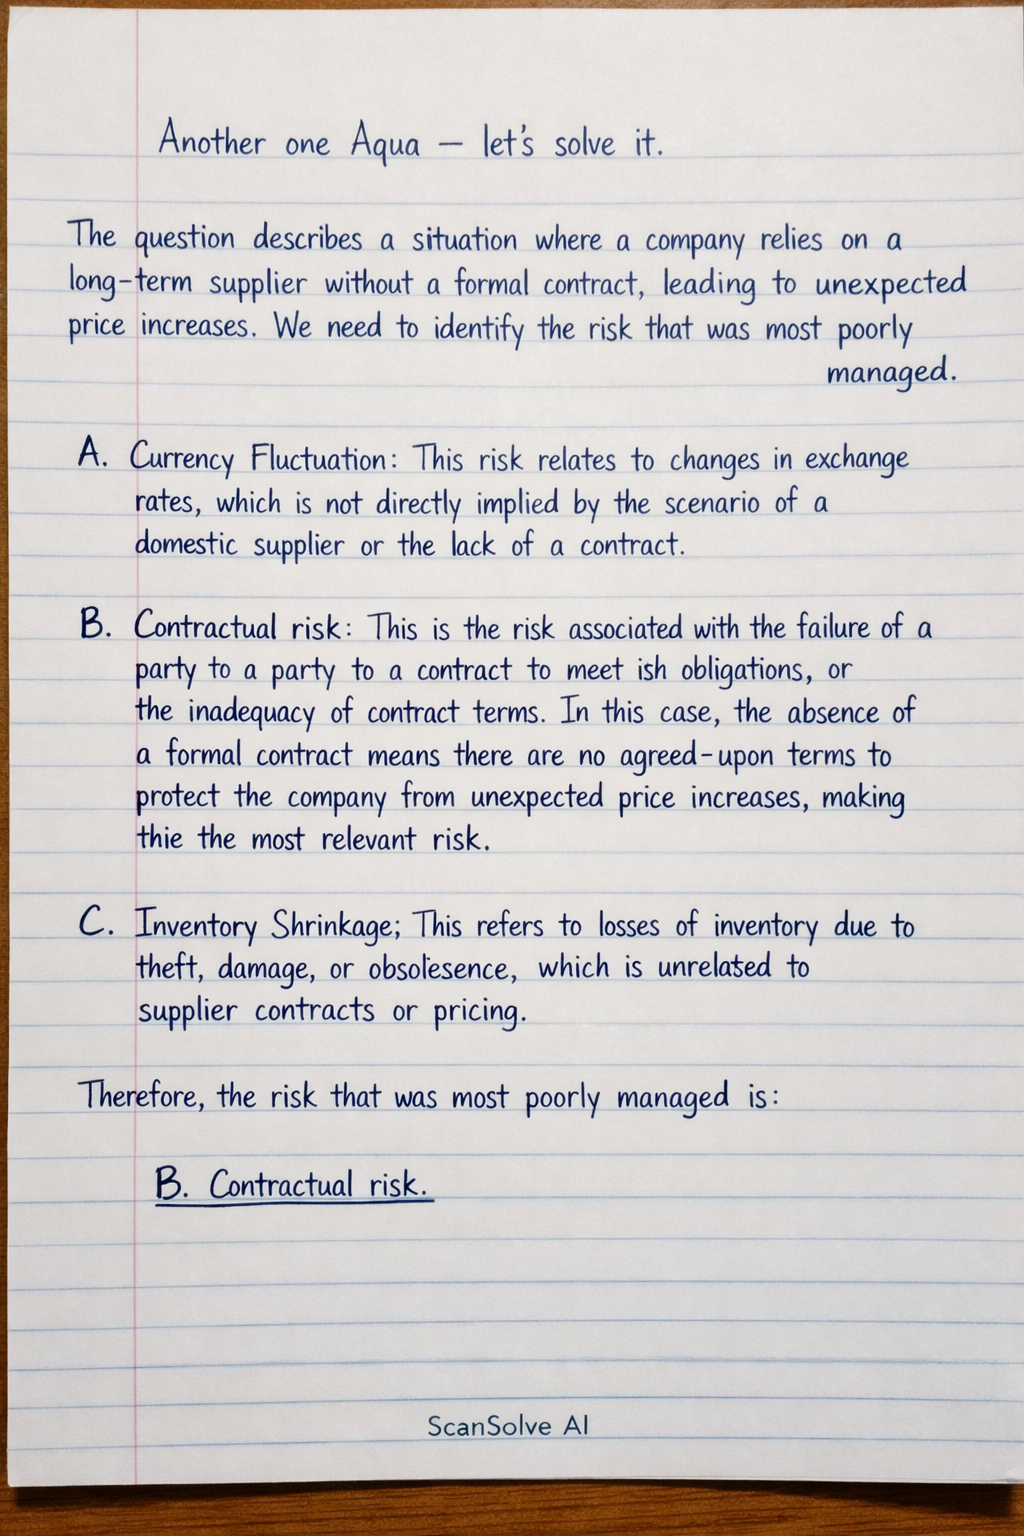 Another one Aqua — let's solve it.
The question describes a situation where a company relies on a
long-term supplier without a formal contract, leading to unexpected
price increases. We need to identify the risk that was most poorly
managed.
A. Currency Fluctuation: This risk relates to changes in exchange
rates, which is not directly implied by the scenario of a
domestic supplier or the lack of a contract.
B. Contractual risk: This is the risk associated with the failure of a
party to a party to a contract to meet ish obligations, or
the inadequacy of contract terms. In this case, the absence of
a formal contract means there are no agreed-upon terms to
protect the company from unexpected price increases, making
thie the most relevant risk.
C. Inventory Shrinkage; This refers to losses of inventory due to
theft, damage, or obsolesence, which is unrelated to
supplier contracts or pricing.
Therefore, the risk that was most poorly managed is:
B. Contractual risk.
ScanSolve AI